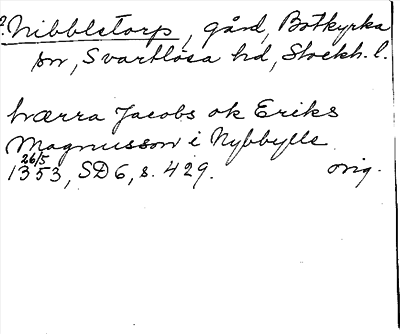 ?Nibbletorp, gård, Botkyrka
sn, Svartlösa hd, Stockh. l.
hærra Jacobs ok Eriks
Magnusson i Nybbylle
26/5
1353, SD 6, s. 429. orig.